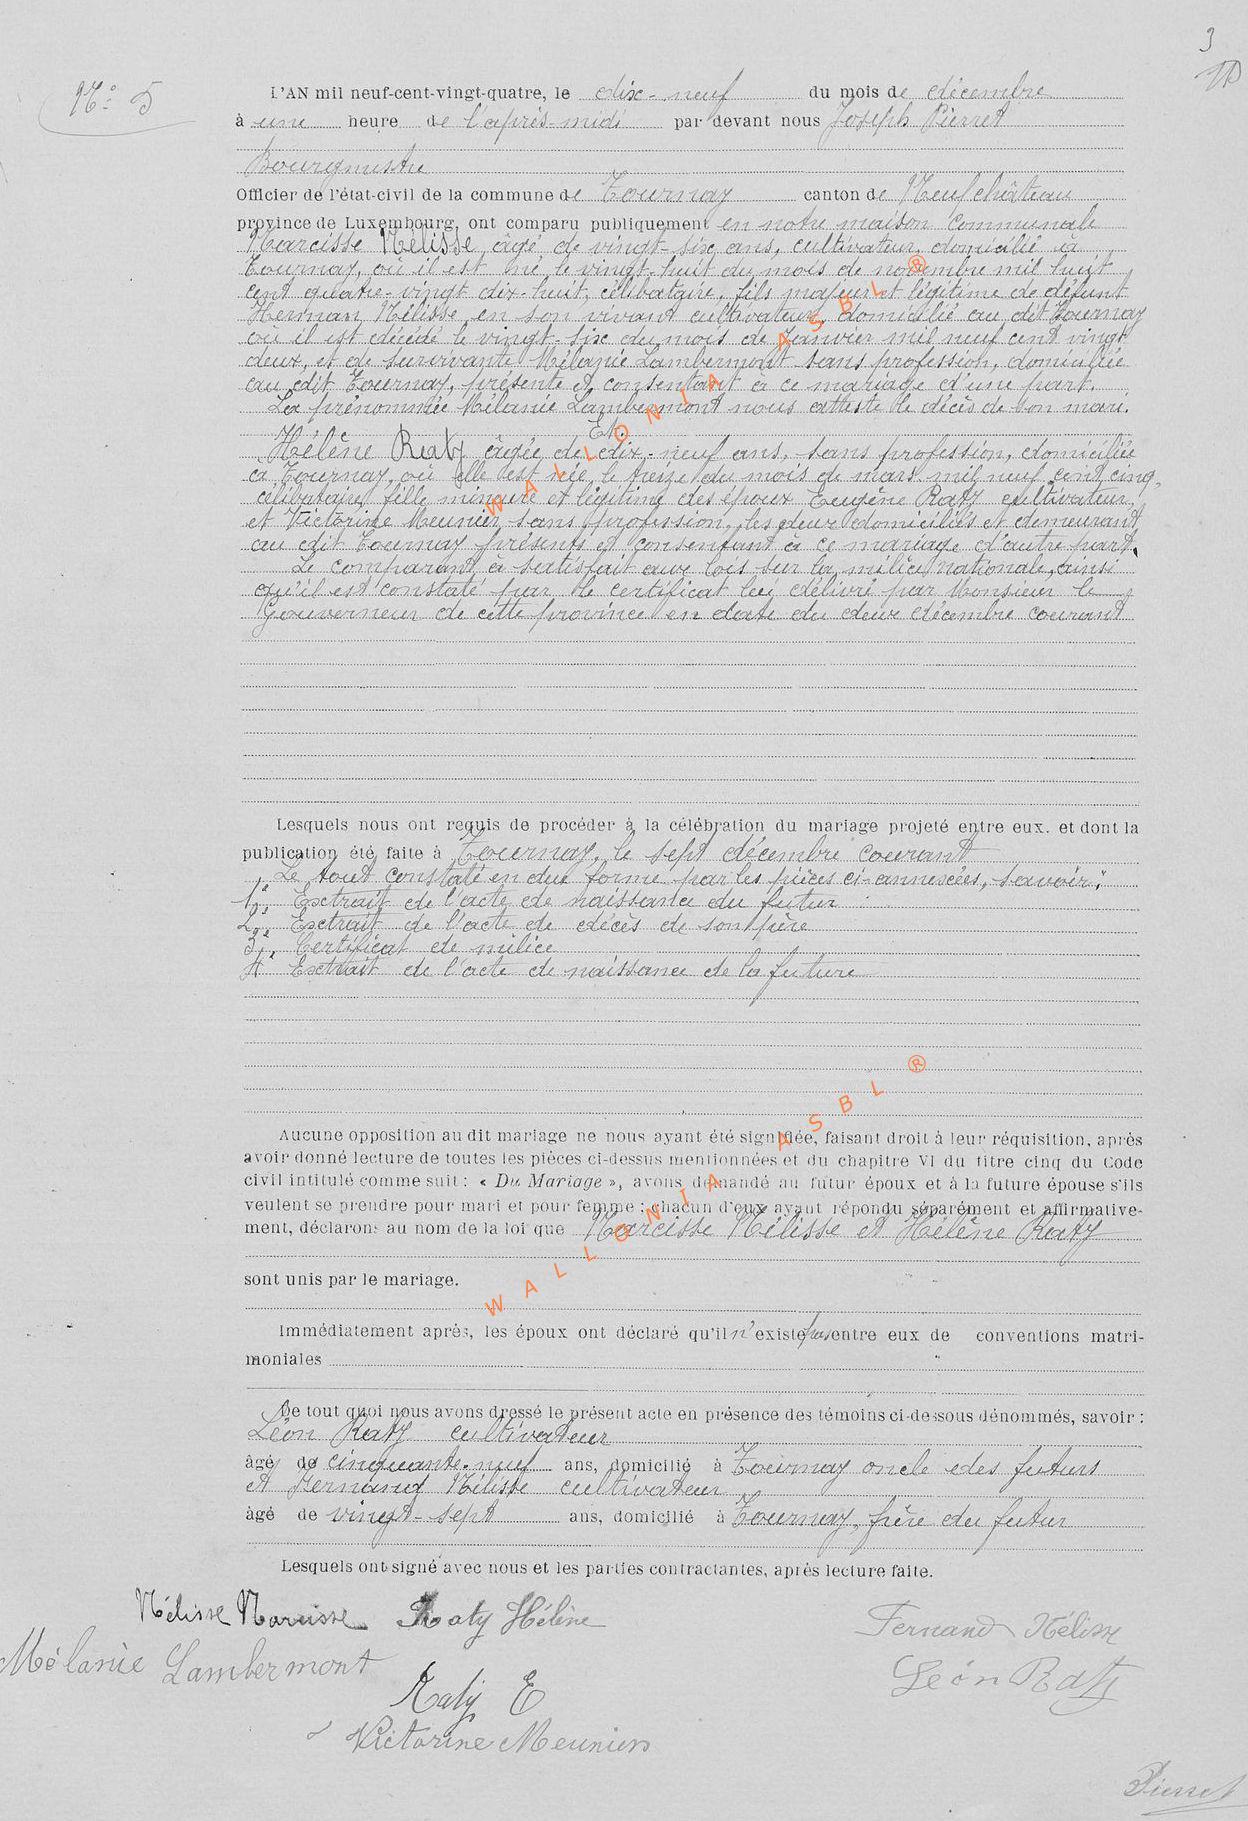 3
N° 5
L'AN mil neuf-cent-vingt-quatre, le dix-neuf du mois de décembre
à une heure de l'après-midi par devant nous Joseph Pierret
Bourgmestre
Officier de l'état-civil de la commune de Tournay canton de Neufchâteau
province de Luxembourg, ont comparu publiquement en notre maison communale
Narcisse Nélisse âgé de vingt-six ans, cultivateur, domicilié à
Tournay, où il est né, le vingt-huit du mois de novembre mil huit
cent quatre-vingt dix-huit, célibataire, fils majeur et légitime de défunt
Herman Nélisse, en son vivant cultivateur, domicilié au dit Tournay
où il est décédé le vingt-six du mois de Janvier mil neuf cent vingt
deux, et de survivante Mélanie Lambermont sans profession, domiciliée
au dit Tournay, présente et consentant à ce mariage d'une part.
La prénommée Mélanie Lambermont nous atteste le décès de son mari.
Et.
Hélène Raty âgée de dix-neuf ans, sans profession, domiciliée
à Tournay, où elle est née, le treize du mois de mars mil neuf cent cinq,
célibataire, fille mineure et légitime des époux Eugène Raty cultivateur,
et Victorine Meunier sans profession, les deux domiciliés et demeurant
au dit Tournay présents et consentant à ce mariage d'autre part.
Le comparant a satisfait aux lois sur la milice nationale, ainsi
qu'il est constaté par le certificat lui délivré par Monsieur le
Gouverneur de cette province en date du deux décembre courant
Lesquels nous ont requis de procéder à la célébration du mariage projeté entre eux. et dont la
publication été faite à Tournay, le sept décembre courant
Le tout constaté en due forme par les pièces ci-annexées, savoir:
1° Extrait de l'acte de naissance du futur
2° Extrait de l'acte de décès de son père
3° Certificat de milice
4° Extrait de l'acte de naissance de la future
Aucune opposition au dit mariage ne nous ayant été signifiée, faisant droit à leur réquisition, après
avoir donné lecture de toutes les pièces ci-dessus mentionnées et du chapitre VI du titre cinq du Code
civil intitulé comme suit : « Du Mariage », avons demandé au futur époux et à la future épouse s'ils
veulent se prendre pour mari et pour femme ; chacun d'eux ayant répondu séparément et affirmative-
ment, déclarons au nom de la loi que Narcisse Nélisse et Hélène Raty
sont unis par le mariage.
Immédiatement après, les époux ont déclaré qu'il n'existe pas entre eux de conventions matri-
moniales
De tout quoi nous avons dressé le présent acte en présence des témoins ci-dessous dénommés, savoir :
Léon Raty cultivateur
âgé de cinquante-neuf ans, domicilié à Tournay oncle des futurs
et Fernand Nélisse cultivateur
âgé de vingt-sept ans, domicilié à Tournay, frère du futur
Lesquels ont signé avec nous et les parties contractantes, après lecture faite.
Nélisse Narcisse Raty Hélène Fernand Nélisse
Mélanie Lambermont Léon Raty
Raty E
Victorine Meunier
Pierret
WALLONIA ASBL ®
WALLONIA ASBL ®